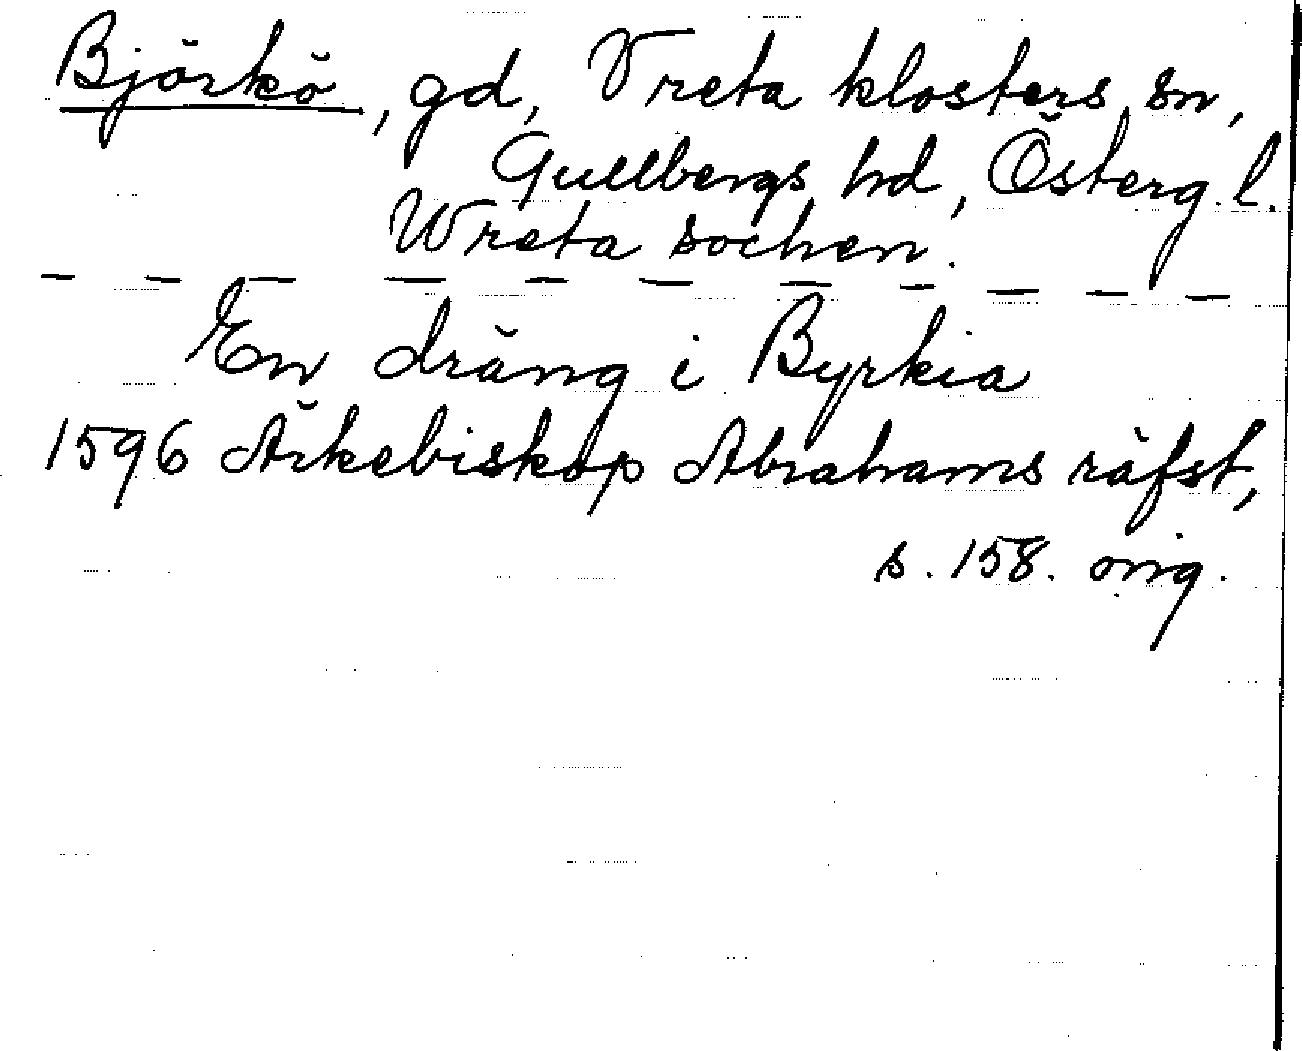 Björkö, gd, Vreta klosters sn,
Gullbergs hd, Österg.l.
Wreta sochen.
En dräng i Byrkia
1596 Ärkebiskop Abrahams räfst,
s. 158. orig.